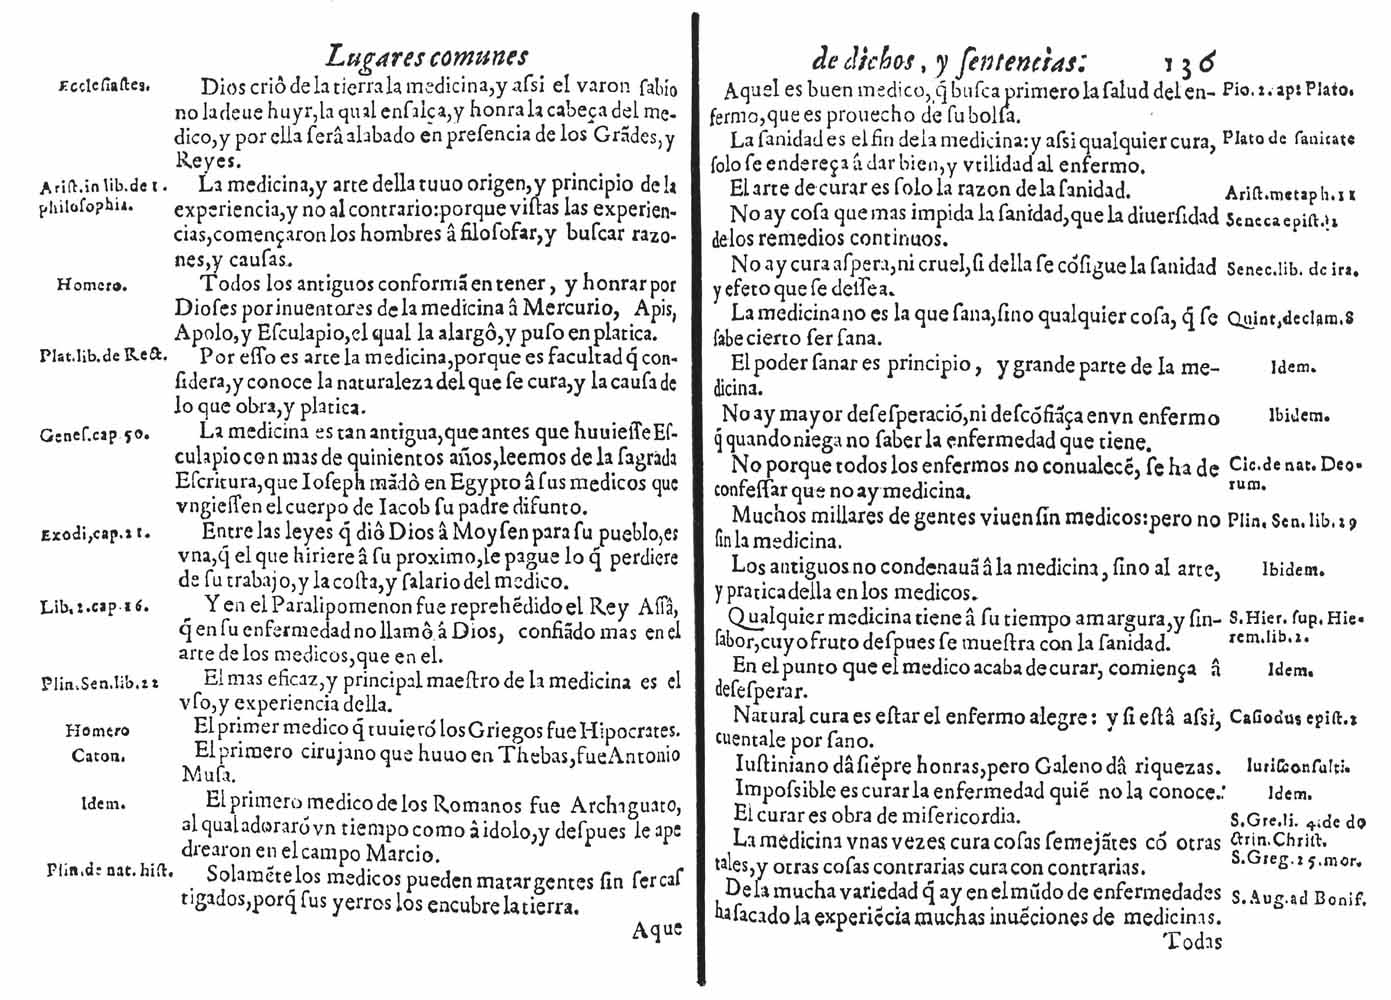 Lugares comunes
Ecclesiastes. Dios criô de la tierra la medicina, y aſsi el varon ſabio
no la deue huyr, la qual enſalça, y honra la cabeça del me-
dico, y por ella ſerâ alabado en preſencia de los Grãdes, y
Reyes.
Ariſt. in lib. de 1. La medicina, y arte della tuuo origen, y principio de la
philoſophia. experiencia, y no al contrario: porque viſtas las experien-
cias, començaron los hombres â filoſofar, y buſcar razo-
nes, y cauſas.
Homero. Todos los antiguos conformã en tener, y honrar por
Dioſes por inuentores de la medicina â Mercurio, Apis,
Apolo, y Eſculapio, el qual la alargô, y puſo en platica.
Plat. lib. de Rect. Por eſſo es arte la medicina, porque es facultad q̃ con-
ſidera, y conoce la naturaleza del que ſe cura, y la cauſa de
lo que obra, y platica.
Geneſ. cap. 50. La medicina es tan antigua, que antes que huuieſſe Eſ-
culapio con mas de quinientos años, leemos de la ſagrada
Eſcritura, que Ioſeph mãdô en Egypto â ſus medicos que
vngieſſen el cuerpo de Iacob ſu padre difunto.
Exodi, cap. 21. Entre las leyes q̃ diô Dios â Moyſen para ſu pueblo, es
vna, q̃ el que hiriere â ſu proximo, le pague lo q̃ perdiere
de ſu trabajo, y la coſta, y ſalario del medico.
Lib. 2. cap. 16. Y en el Paralipomenon fue reprehẽdido el Rey Aſſâ,
q̃ en ſu enfermedad no llamô â Dios, confiãdo mas en el
arte de los medicos, que en el.
Plin. Sen. lib. 22 El mas eficaz, y principal maeſtro de la medicina es el
vſo, y experiencia della.
Homero El primer medico q̃ tuuierõ los Griegos fue Hipocrates.
Caton. El primero cirujano que huuo en Thebas, fue Antonio
Muſa.
Idem. El primero medico de los Romanos fue Archaguato,
al qual adorarõ vn tiempo como â idolo, y deſpues le ape
drearon en el campo Marcio.
Plin. de nat. hiſt. Solamẽte los medicos pueden matar gentes ſin ſer caſ
tigados, porq̃ ſus yerros los encubre la tierra.
Aque
de dichos, y ſentencias: 136
Aquel es buen medico, q̃ buſca primero la ſalud del en- Pio. 2. ap: Plato.
fermo, que es prouecho de ſu bolſa.
La ſanidad es el fin de la medicina: y aſsi qualquier cura, Plato de ſanitate
ſolo ſe endereça â dar bien, y vtilidad al enfermo.
El arte de curar es ſolo la razon de la ſanidad. Ariſt. metaph. 11
No ay coſa que mas impida la ſanidad, que la diuerſidad Seneca epiſt.
de los remedios continuos.
No ay cura aſpera, ni cruel, ſi della ſe cõſigue la ſanidad Senec. lib. de ira.
y efeto que ſe deſſea.
La medicina no es la que ſana, ſino qualquier coſa, q̃ ſe Quint, declam. 8
ſabe cierto ſer ſana.
El poder ſanar es principio, y grande parte de la me- Idem.
dicina.
No ay mayor deſeſperaciõ, ni deſcõfiãça en vn enfermo Ibidem.
q̃ quando niega no ſaber la enfermedad que tiene.
No porque todos los enfermos no conualecẽ, ſe ha de Cic. de nat. Deo-
confeſſar que no ay medicina. rum.
Muchos millares de gentes viuen ſin medicos: pero no Plin. Sen. lib. 29
ſin la medicina.
Los antiguos no condenauã â la medicina, ſino al arte, Ibidem.
y pratica della en los medicos.
Qualquier medicina tiene â ſu tiempo amargura, y ſin- S. Hier. ſup. Hie-
ſabor, cuyo fruto deſpues ſe mueſtra con la ſanidad. rem. lib. 2.
En el punto que el medico acaba de curar, comiença â Idem.
deſeſperar.
Natural cura es eſtar el enfermo alegre: y ſi eſtâ aſsi, Caſiodus epiſt. 2
cuentale por ſano.
Iuſtiniano dâ ſiẽpre honras, pero Galeno dâ riquezas. Iuriſconſulti.
Impoſsible es curar la enfermedad quiẽ no la conoce. Idem.
El curar es obra de miſericordia. S. Gre. li. 4. de do
La medicina vnas vezes cura coſas ſemejãtes cõ otras ctrin. Chriſt.
tales, y otras coſas contrarias cura con contrarias. S. Greg. 25. mor.
De la mucha variedad q̃ ay en el mũdo de enfermedades S. Aug. ad Bonif.
ha ſacado la experiẽcia muchas inuẽciones de medicinas.
Todas